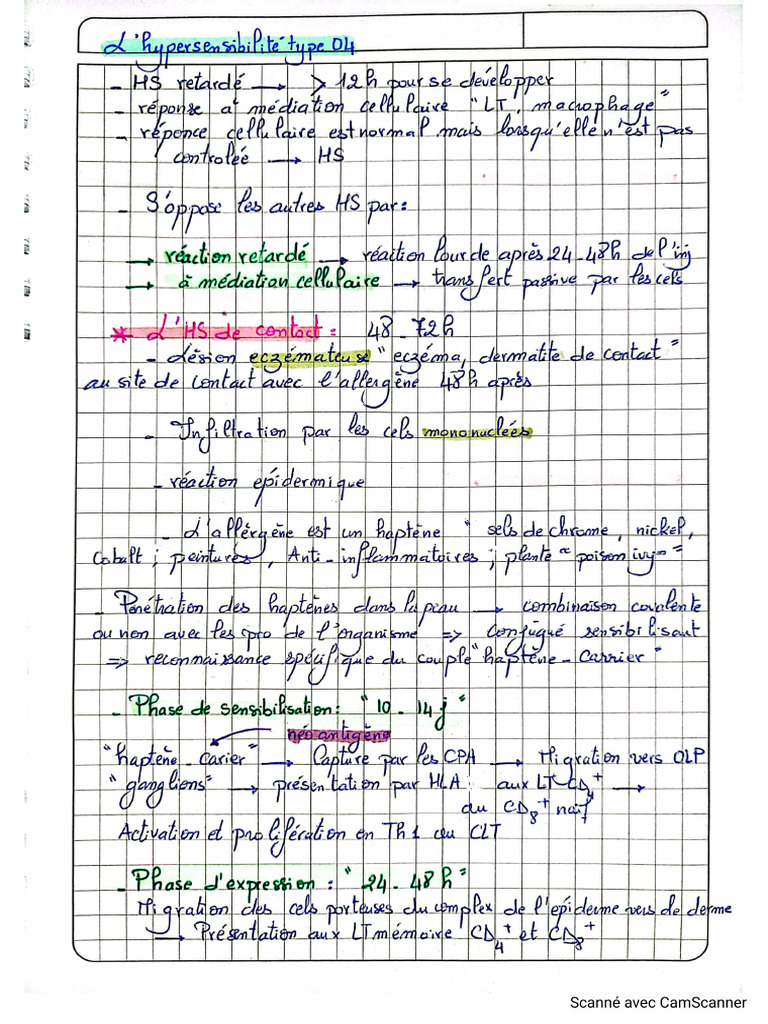 L'hypersensibilité type 04
- HS retardé → > 12h pour se développer
- réponse à médiation cellulaire "LT, macrophage"
- réponce cellulaire est normal mais lorsqu'elle n'est pas
controlée → HS
- S'oppose les autres HS par:
→ réaction retardé → réaction lourde après 24-48h de l'inj
→ à médiation cellulaire → transfert passive par les cels
* L'HS de contact: 48-72h
- Lésion eczémateuse "eczéma, dermatite de contact"
au site de contact avec l'allergène 48h après
- Infiltration par les cels mononuclées
- réaction epidermique
- L'allérgène est un haptène "sels de chrome, nickel,
cobalt ; peintures, Anti-inflammatoires ; plante "poison ivy""
- Pénétration des haptènes dans la peau → combinaison covalente
ou non avec les pro de l'organisme => conjugué sensibilisant
=> reconnaissance spécifique du couple "haptène-carrier"
- Phase de sensibilisation: "10-14j"
néo antigène
"haptène-carier" → Capture par les CPA → Migration vers OLP
"ganglions" → présentation par HLA aux LT CD4+ →
ou CD8+ naïf
Activation et prolifération en Th1 ou CLT
- Phase d'expression: "24-48h"
Migration des cels porteuses du complex de l'epiderme vers de derme
→ Présentation aux LT mémoire CD4+ et CD8+
Scanné avec CamScanner